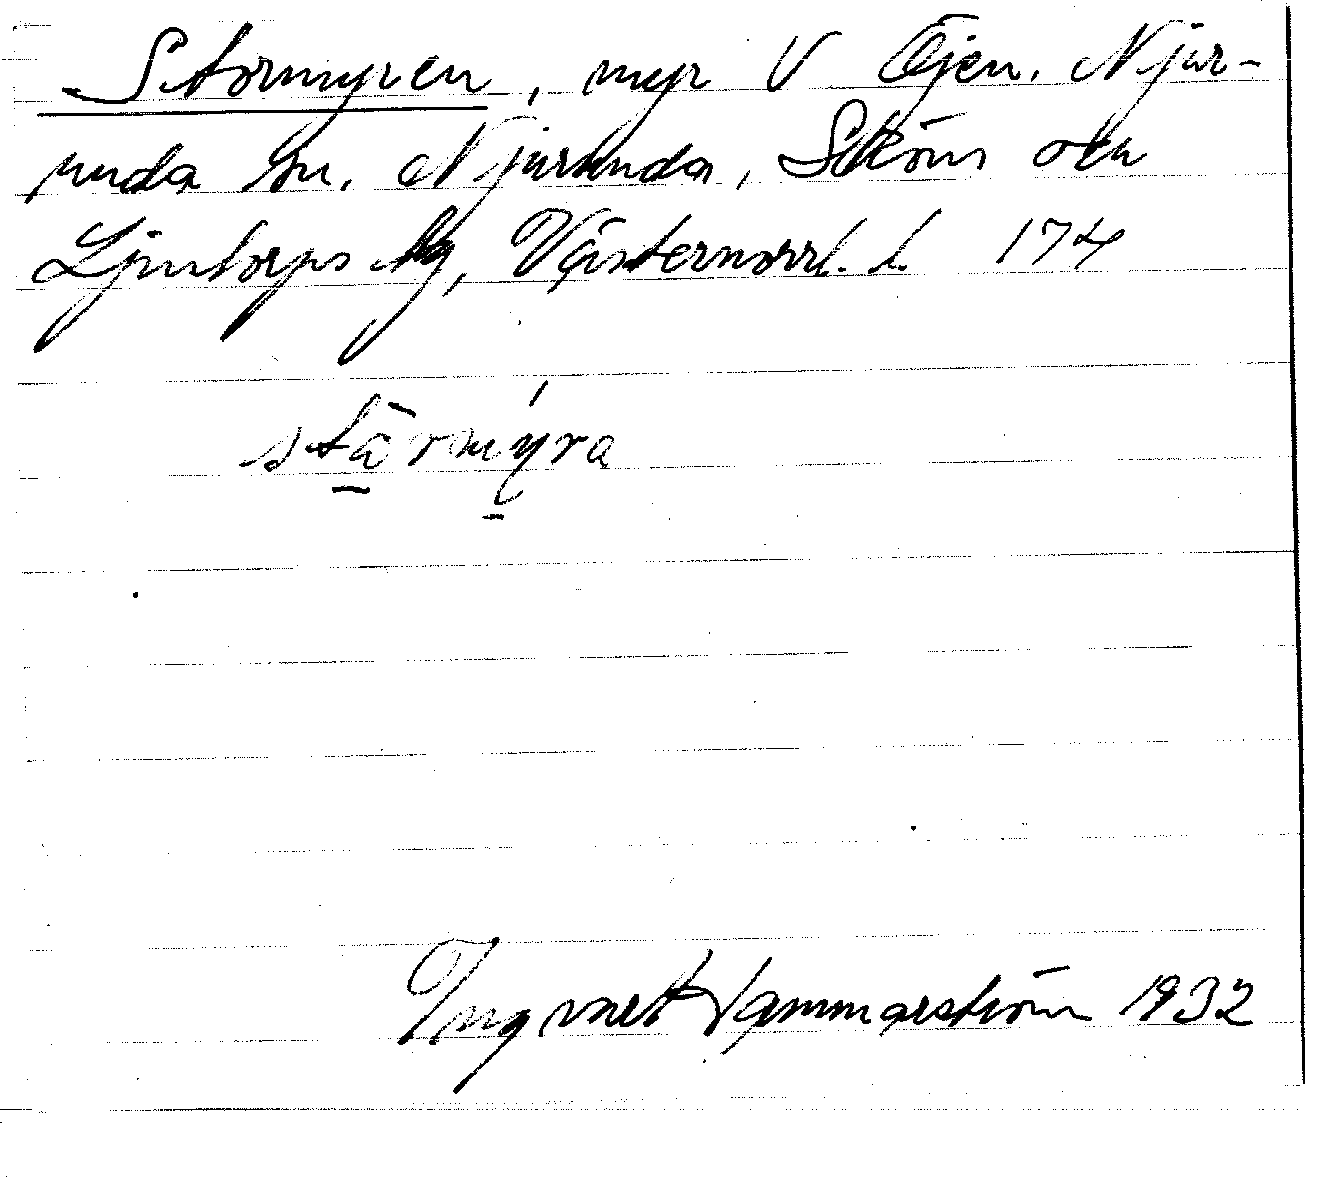 Stormyren, myr V Öjen. Njur-
unda sn. Njurunda, Sköns och
Ljustorps tlg, Västernorrl. l. 174
stårmýra
Ingvar Hammarström 1932